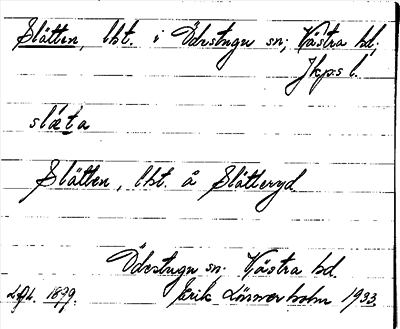 Slätten, lht. i Ödestugu sn; Västra hd;
Jkps l.
slæta
Slätten, lht. å Slätteryd
Ödestugu sn. Västra hd.
1879. Erik Lönnerholm 1933.